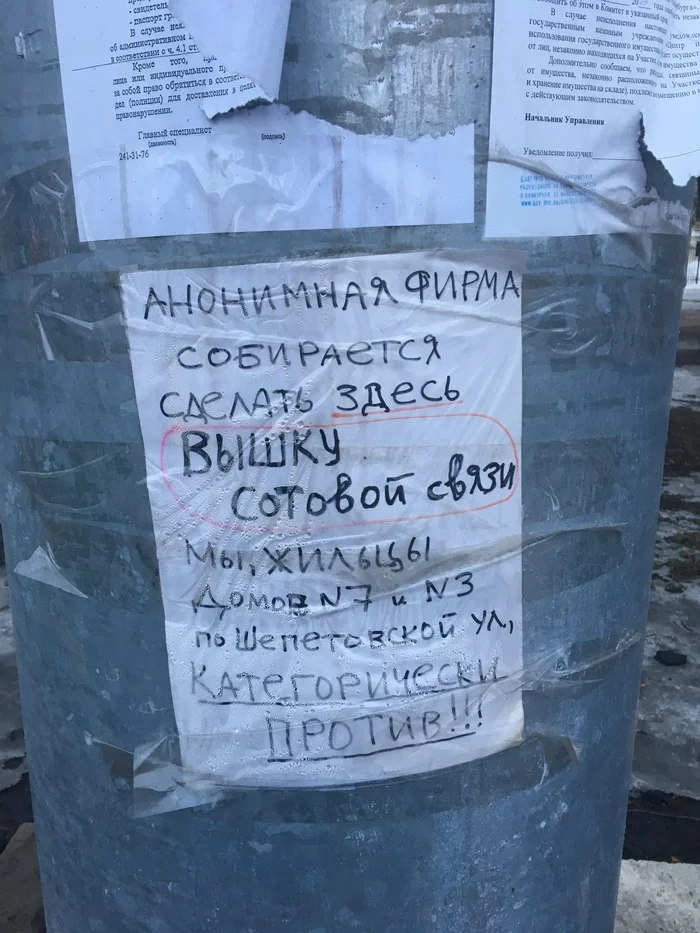 - свидетель
- паспорт гр
В случае неяв
об административном п
в соответствии с ч. 4.1 ст.
Кроме того, пр
лица или индивидуального пр
за собой право обратиться в соответс
дел (полиции) для доставления в целях
правонарушении.
Главный специалист
(должность)
(подпись)
241-31-76
ободить об этом в Комитет в указанный
В случае неисполнения
государственным казенным учреждением
использования государственного имущества
от лиц, незаконно находящихся на Участке
Дополнительно сообщаем, что
от имущества, незаконно расположенного на Участке
и хранение имущества на складе), подлежат
с действующим законодательством.
Начальник Управления
Уведомление получил:
АНОНИМНАЯ ФИРМА
СОБИРАЕТСЯ
СДЕЛАТЬ ЗДЕСЬ
ВЫШКУ
СОТОВОЙ СВЯЗИ
МЫ, ЖИЛЬЦЫ
ДОМОВ N7 и N3
ПО ШЕПЕТОВСКОЙ УЛ,
КАТЕГОРИЧЕСКИ
ПРОТИВ!!!